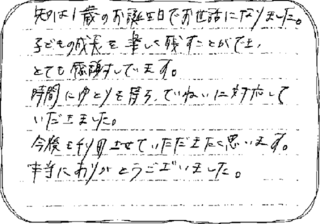 1歳のお誕生日でお世話になりました。
子どもの成長を美しく残すことができ、
とても感謝しています。
時間にゆとりを持ち、ていねいに対応して
いただきました。
今後も利用させていただきたく思います。
本当にありがとうございました。